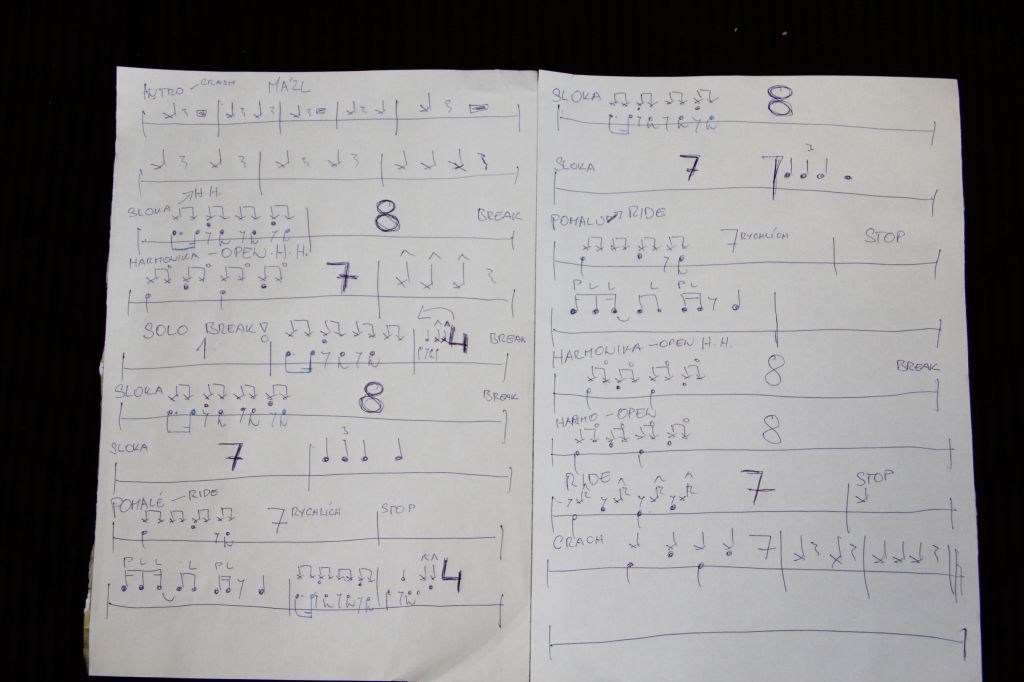 INTRO CRASH MÁZL
SLOKA H.H. 8 BREAK
HARMONIKA - OPEN H.H. 7
SOLO 1 BREAK! 4 BREAK
SLOKA 8 BREAK
SLOKA 7 3
POMALÉ - RIDE 7 RYCHLÍCH STOP
P L L L P L 4
SLOKA 8
SLOKA 7 3
RIDE 7 RYCHLÍCH STOP
P L L L P L
HARMONIKA - OPEN H.H. 8 BREAK
HARMO - OPEN 8
RIDE 7 STOP
CRACH 7